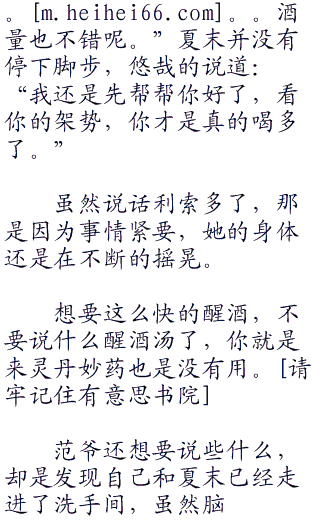 。[m.heihei66.com]。。酒
量也不错呢。”夏末并没有
停下脚步，悠哉的说道：
“我还是先帮帮你好了，看
你的架势，你才是真的喝多
了。”
虽然说话利索多了，那
是因为事情紧要，她的身体
还是在不断的摇晃。
想要这么快的醒酒，不
要说什么醒酒汤了，你就是
来灵丹妙药也是没有用。[请
牢记住有意思书院]
范爷还想要说些什么，
却是发现自己和夏末已经走
进了洗手间，虽然脑